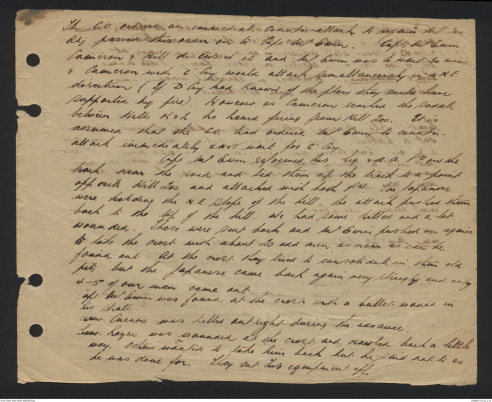 The C.O. ordered an immediate counter-attack to regain
Key passed this order on to Capt McEwin. Capt McEwin
Cameron & discussed it and McEwin was to wait
& Cameron with C Coy would attack simultaneously in a N.E.
direction (if D Coy had known of the plan they could have
supported by fire). However as Cameron reached the saddle
between Hills he heard firing from Hill 205. It is
assumed that the CO. had ordered McEwin to counter-
attack immediately & not wait for C Coy.
Capt McEwin reformed his on the
track near the and led them up the track to a point
opposite Hill 205 and attacked with both The Japanese
were holding the N.E. slope of the hill. The attack pushed them
back to the top of the hill. We had some killed and a lot
wounded. These were sent back and McEwin pushed on again
to take the crest with about 20 odd men, as near as can be
found out. At the crest they tried to consolidate in their old
pits but the Japanese came back again very strongly and only
4-5 of our men came out.
Capt McEwin was found at the crest with a bullet wound in
his skull.
was killed outright during the advance.
was wounded at the crest and crawled back a little
way. Others wanted to take him back but he said not to as
he was done for. They cut his equipment off.